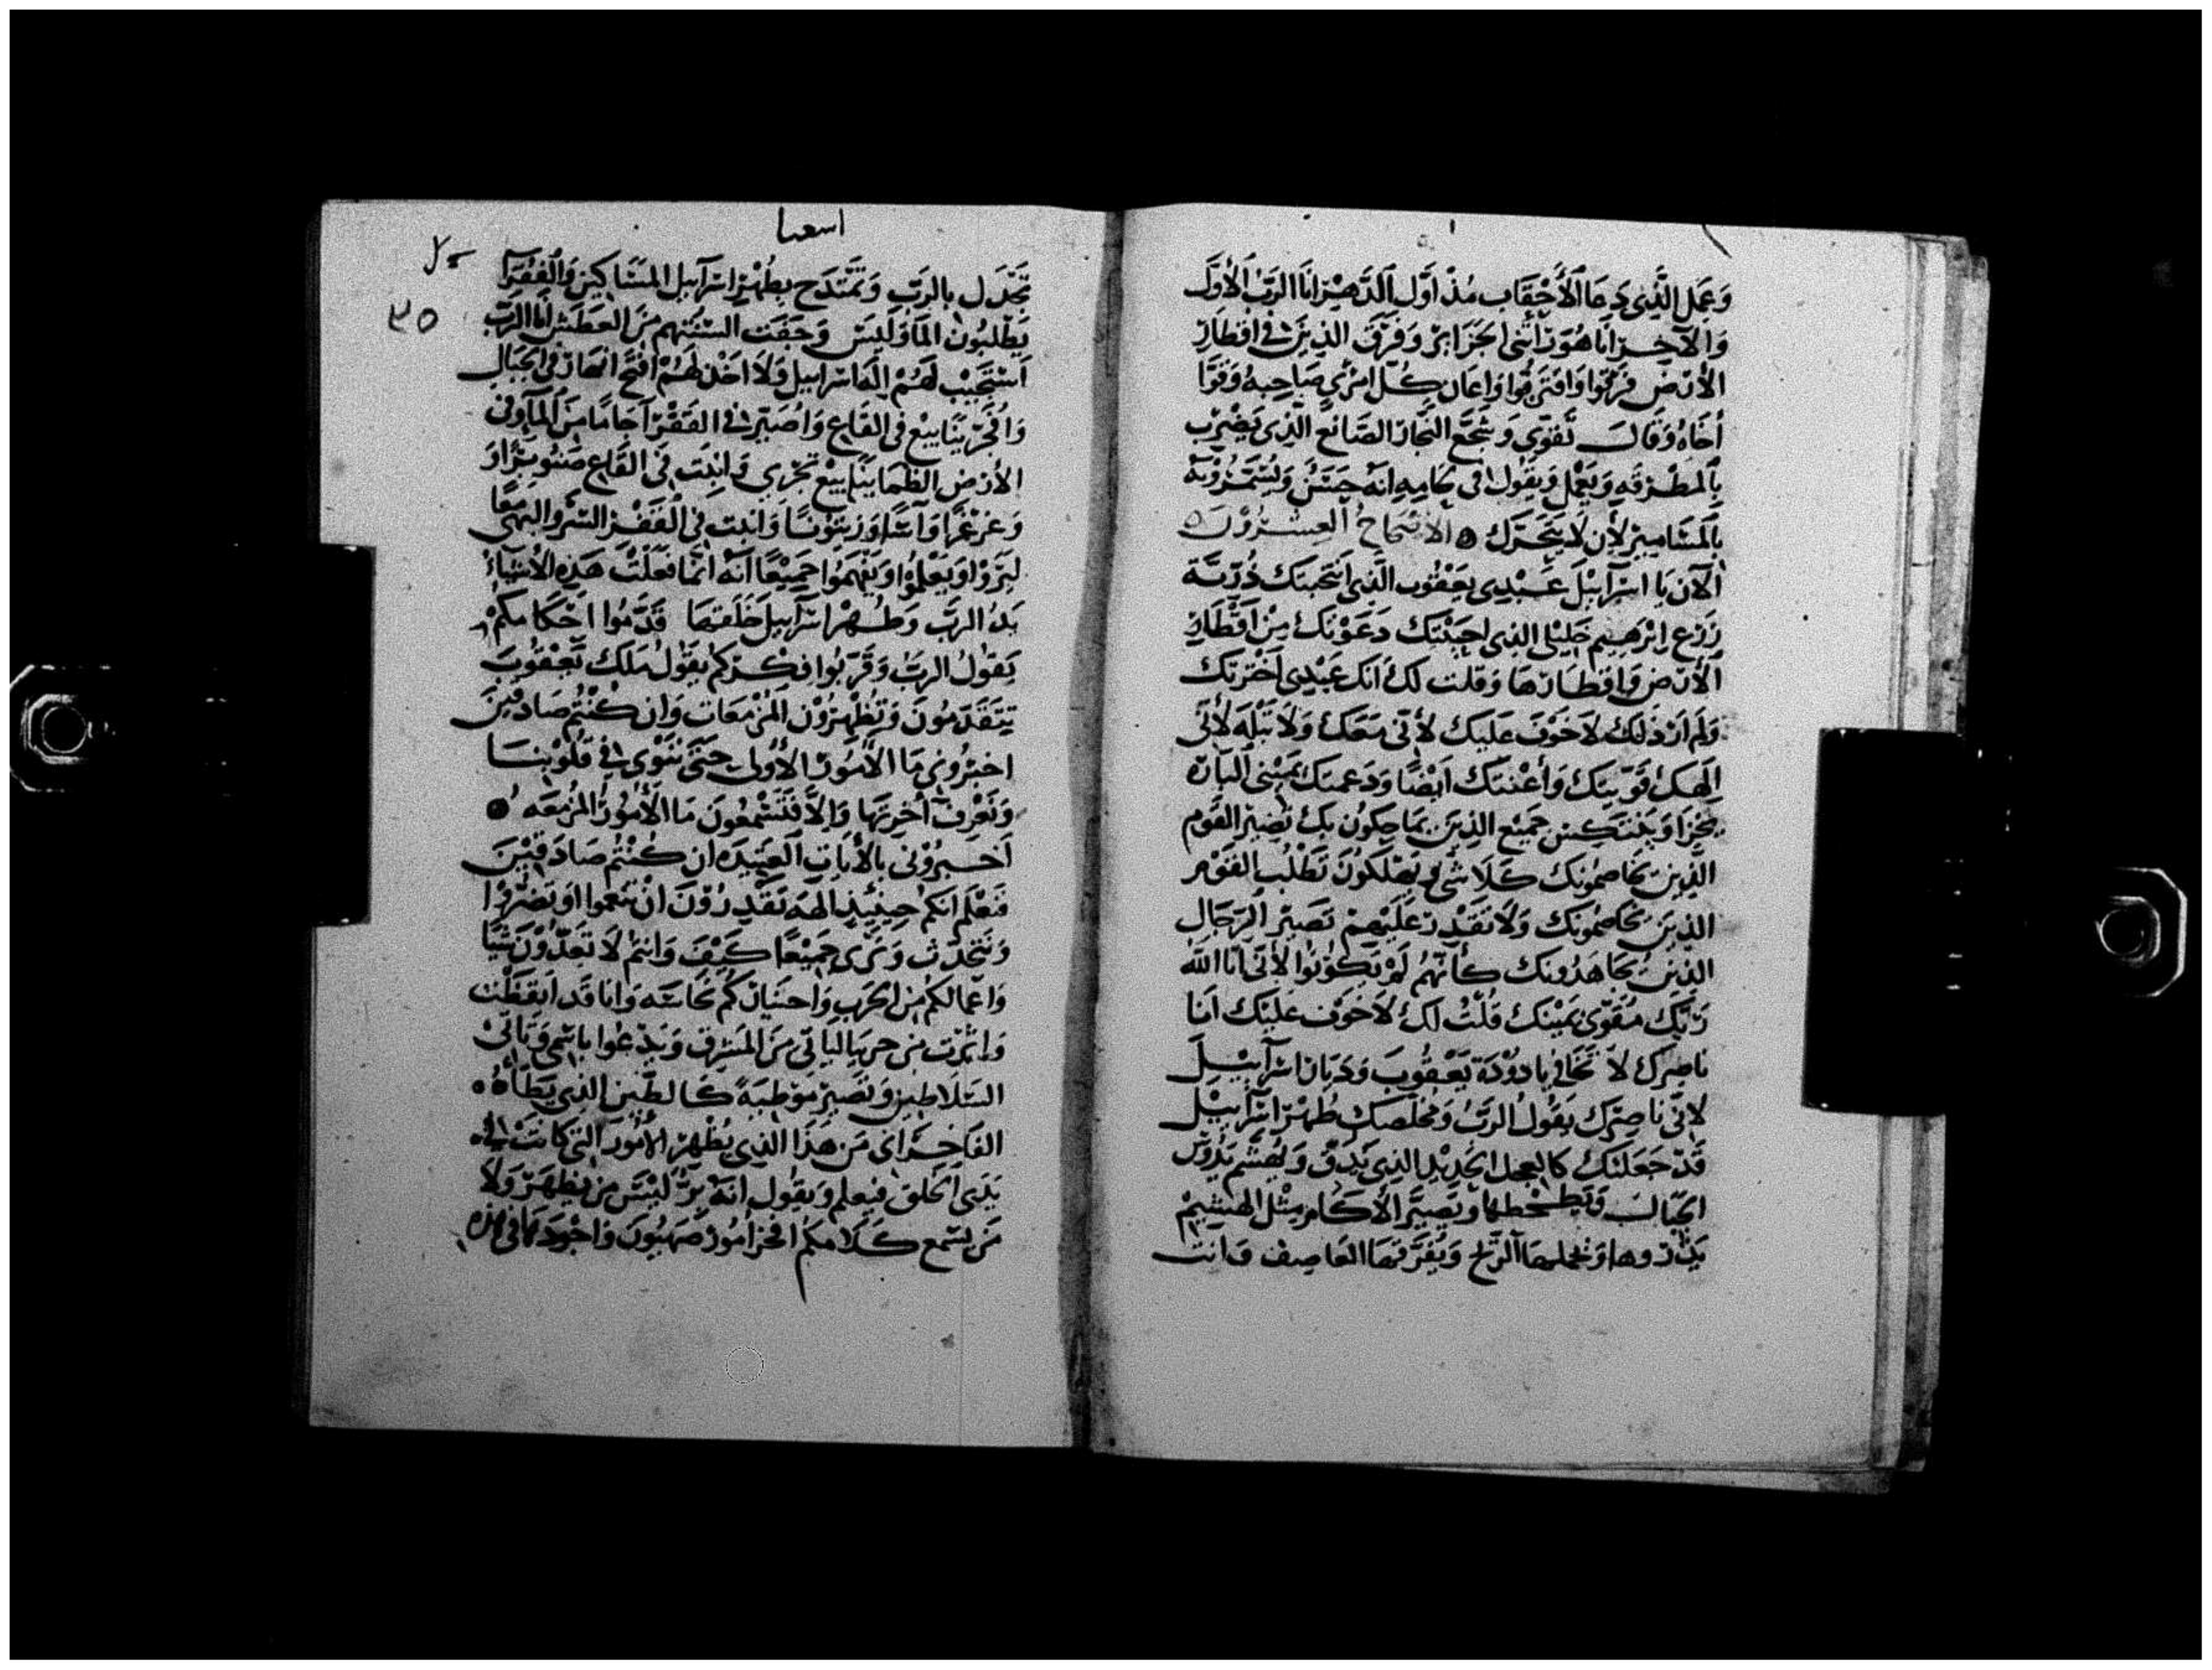 وَعَمِل الَّذِى دَعَا الأَحْقَاب مُذْ اَوَّل الدَّهْر اَنَا الرَبّ الأوَّل
وَالآخِر اَنَا هُوَ رَأتنى الجَزَائِر وَفَرْقَ الذِينَ فى اقطَار
الأرْض فَرقوا وَاقتَربُوا وَاعَان كُلّ امْرئ صَاحِبهُ وَقوَّا
أخَاهُ وَقَالَ تَقوّى وَشَجَّع النَّجّار الصَّانعَ الّذِى يَضْرِب
بِالمطْرقَهِ وَيَعْمَل وَيقُول فى كلَامِهِ انَّهُ حَسَنٌ وَيُسَمّرُونَهُ
بِالمَسَاميرْ لأن لَا يَتَحَرّك الاصْحَاحُ العِشْرُوْنَ
الآن يَا اسْرآئيْلَ عَبْدِى يَعْقُوب الَّذِى انتَخبتك ذُرّيَّة
زَرْع ابْرَهِيم خَليْلى الذِى احْبَبْتك دَعَوْتك مِنْ اَقْطَارِ
الأرْض وَاقطَارهَا وَقلت لكَ انَك عَبْدِى اَخْتَرتك
وَلَم ارْذلك لَا خَوْفَ عَليكَ لأنّى مَعَكَ وَلَا تَبْلَه لأنّى
الَهك قوّيتك وَأعْنتك ايْضًا وَدَعمتك بيَميْنى البَارّه
يخزَا وَيَنْتَكِس جَميْع الذِينَ يمَاحِكُون بك تَصِيرْ القَوْم
الَّذِينَ يُخَاصمُونك كَلَا شَىء يَهْلكُونَ تَطْلُب القَوْم
الذِينَ يخَاصمُونك وَلَا تقْدِر عَلَيْهمْ تَصَيرْ الرّجَال
الذِينَ يُجَاهَدُونك كأنّهُمْ لَمْ يَكُوْنُوا لأنّى اَنَا اللّه
رَبّك مُقَوّى يَميْنك قُلْتُ لك لَا خَوْف عَليْك اَنَا
نَاصِرك لَا تَخَافى يَا دُوْدَة يَعْقُوبَ وَدَبَان اسْرَآئِيْلَ
لأنّى نَاصِرك يَقُولُ الرَبّ وَمُخَلّصك طُهْرْ اسْرآئيْل
قَدْ جَعَلتك كالعجل الجَدِيْد الذِى يَدقّ وَيُهَشّم يَدُوْس
الجِبَالَ وَيَطحْطحها وَيَصيَّر الأكَام مِثْل الهَشِيْمْ
يذْروها وَتحملهَا الرّيح وَيُفَرّقهَا العَاصِف فانت
اسعيا
٣٥
تجْدَل بالرَبّ وَتَمْتَدَح بِطُهْر اسْرَآئيل المسَاكين وَالفُقَرَآ
يَطْلبُون المَآ وَلَيْسَ وَجَفت السْنتهم مِنَ العَطَش اَنَا الرَبّ
اسْتَجَيْب لَهُمْ اله اسْرَائيل وَلَا اخْذلهُمْ افتح انهَار فى الجبَال
وَافَجّر ينَابيع فى القَاعِ وَاصَيّر فى القَفْر آجَامًا مِنَ المَآ وَفى
الأرض الظمَا ينَابيع تجْرى وَانبت فى القَاع صَنَوبَرًا وَ
وَعَرْعَرًا وَآسًا وَزيتوْنًا وَانبت فى القَفْر السّرو البَهى مَعًا
لِيَرَوْا وَيَعْلموُا وَيَفْهَمُوا جَمِيْعًا انَّهُ انَّما فَعَلَتْ هَذِهِ الأشيَاء
يَدُ الربّ وَطُهْر اسْرآئيل خَلَقتهَا قَدّمُوا احْكَامكُمْ
يَقوُل الربّ وَقَرّبُوا فكْركُم يَقوُل مَلك يَعْقُوبَ
يَتَقَدّمُونَ وَيُظْهِرُوْن المُزْمَعَات وَان كُنْتُم صَادقيْنَ
اخبرُونى مَا الأمُور الأوْلى حَتَّى نَنْوى فى قلُوبنَا
وَنَعْرِف أخِرتَهَا وَالّا فَتَسْمِعُونَ مَا الأمُوْرُ المُزمَعَه
اَخبِرُوْنى بالأيَاتِ العَتيدَه ان كُنْتُم صَادقيْنَ
فنَعْلَم انكم حِينئِذٍ الَهَه تَقْدِرُوْنَ انْ تنعموا اوْ تضرّوْا
وَنَتحَدّث وَنَرى جَميْعًا كَيْفَ وَانتم لَا تَعدّوْن شيًا
وَاعْمالكُم مِن الحَربِ وَاحسَانكُم نجَاسَه وَانَا قَد ايقظت
وَاثرْت مِن جربيا ليَاتى مِنَ المَشرق وَيَدْعُوا باسْمى وَيَاتى
السَلَاطين وَتَصيرْ مَوْطيَةً كَالطّين الذِى يَطَأُهُ
الفَاخرَانى مَن هَذَا الذِى يُظْهر الأمُورَ التى كانَتْ فى
بَدى الخلق فنعلم وَيقُول انَّهُ بَرٌّ لَيْسَ مِن يُظهَرْ وَلَا
مَن يَسْمع كَلَامكم افخر امُورُ صَهْيُونَ وَاجوَدهَا فى هذه